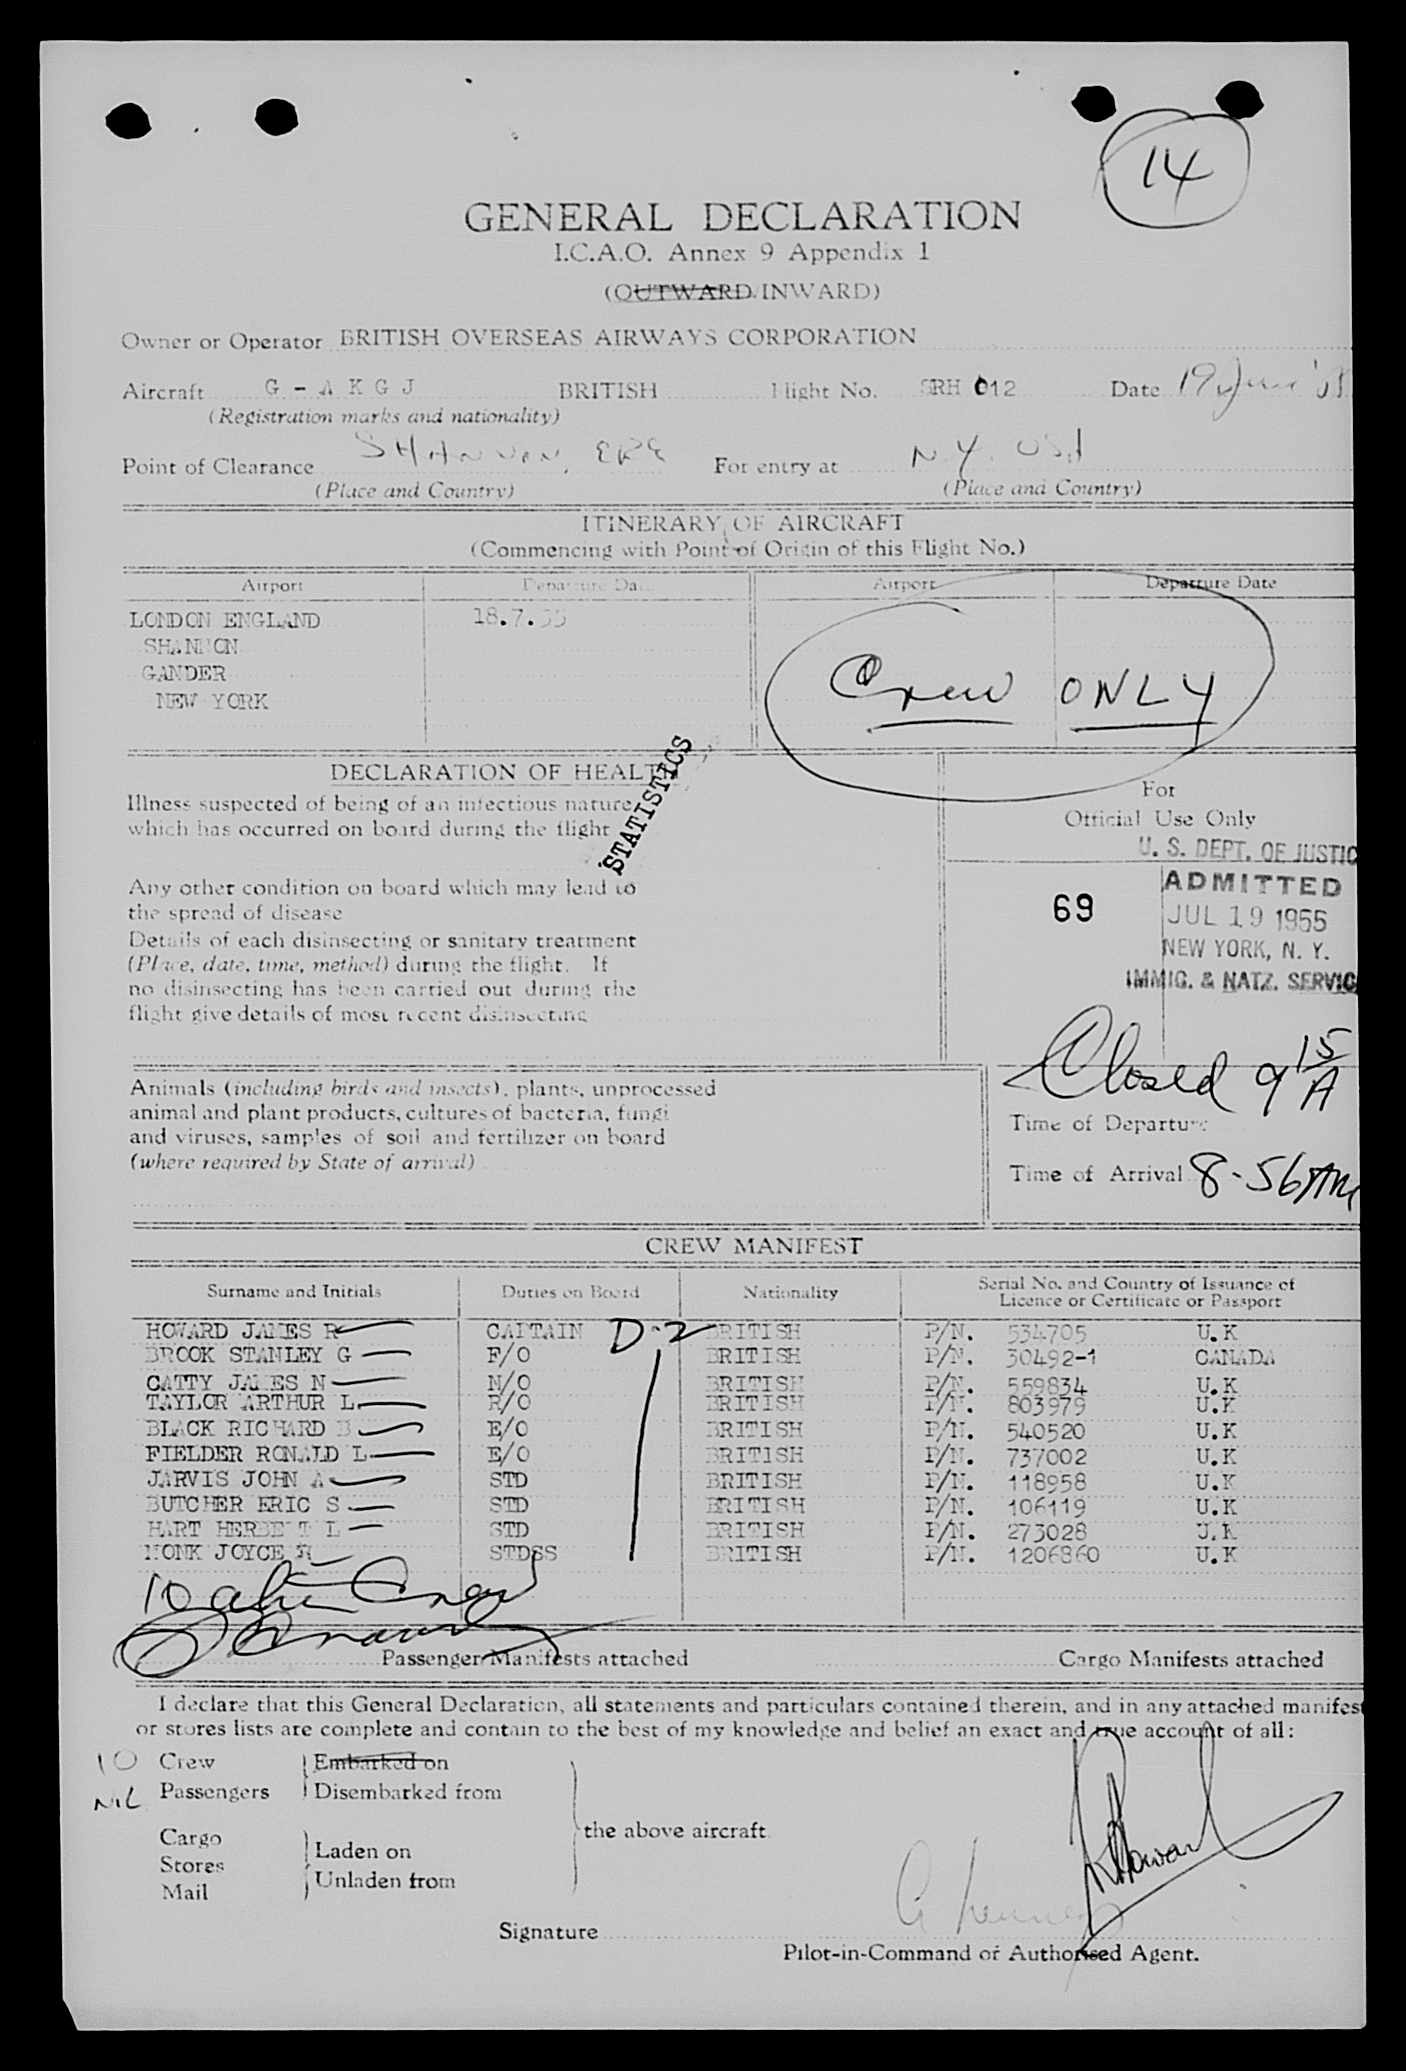 14
GENERAL DECLARATION
I.C.A.O. Annex 9 Appendix 1
(OUTWARD/INWARD)
Owner or Operator BRITISH OVERSEAS AIRWAYS CORPORATION
Aircraft G - A K G J BRITISH Flight No. SRH 012 Date 19
(Registration marks and nationality)
Point of Clearance SHANNON, For entry at N.Y. USA
(Place and Country) (Place and Country)
ITINERARY OF AIRCRAFT
(Commencing with Point of Origin of this Flight No.)
Airport Departure Date Airport Departure Date
LONDON ENGLAND 18.7.55
SHANNON
GANDER
NEW YORK
Crew ONLY
DECLARATION OF HEALTH
STATISTICS
Illness suspected of being of an infectious nature
which has occurred on board during the flight
Any other condition on board which may lead to
the spread of disease
Details of each disinsecting or sanitary treatment
(Place, date, time, method) during the flight. If
no disinsecting has been carried out during the
flight give details of most recent disinsecting
For
Official Use Only
U. S. DEPT. OF JUSTIC
69
ADMITTED
JUL 19 1955
NEW YORK, N. Y.
IMMIG. & NATZ. SERVIC
Closed 9 15 A
Animals (including birds and insects), plants, unprocessed
animal and plant products, cultures of bacteria, fungi
and viruses, samples of soil and fertilizer on board
(where required by State of arrival)
Time of Departure
Time of Arrival 8-56 AM
CREW MANIFEST
Surname and Initials Duties on Board Nationality Serial No. and Country of Issuance of
Licence or Certificate or Passport
HOWARD JAMES R CAPTAIN D-2 BRITISH P/N. 534705 U.K
BROOK STANLEY G F/O BRITISH P/N. 30492-1 CANADA
CATTY JAMES N N/O BRITISH P/N. 559834 U.K
TAYLOR ARTHUR L R/O BRITISH P/N. 803979 U.K
BLACK RICHARD E/O BRITISH P/N. 540520 U.K
FIELDER RONALD L E/O BRITISH P/N. 737002 U.K
JARVIS JOHN A STD BRITISH P/N. 118958 U.K
BUTCHER ERIC S STD BRITISH P/N. 106119 U.K
HART HERBERT L STD BRITISH P/N. 273028 U.K
MONK JOYCE STDSS BRITISH P/N. 1206860 U.K
10 alien Crew
Passenger Manifests attached Cargo Manifests attached
I declare that this General Declaration, all statements and particulars contained therein, and in any attached manifest
or stores lists are complete and contain to the best of my knowledge and belief an exact and true account of all:
10 Crew Embarked on
NIL Passengers Disembarked from
the above aircraft
Cargo
Stores Laden on
Mail Unladen from
Signature
Pilot-in-Command or Authorised Agent.